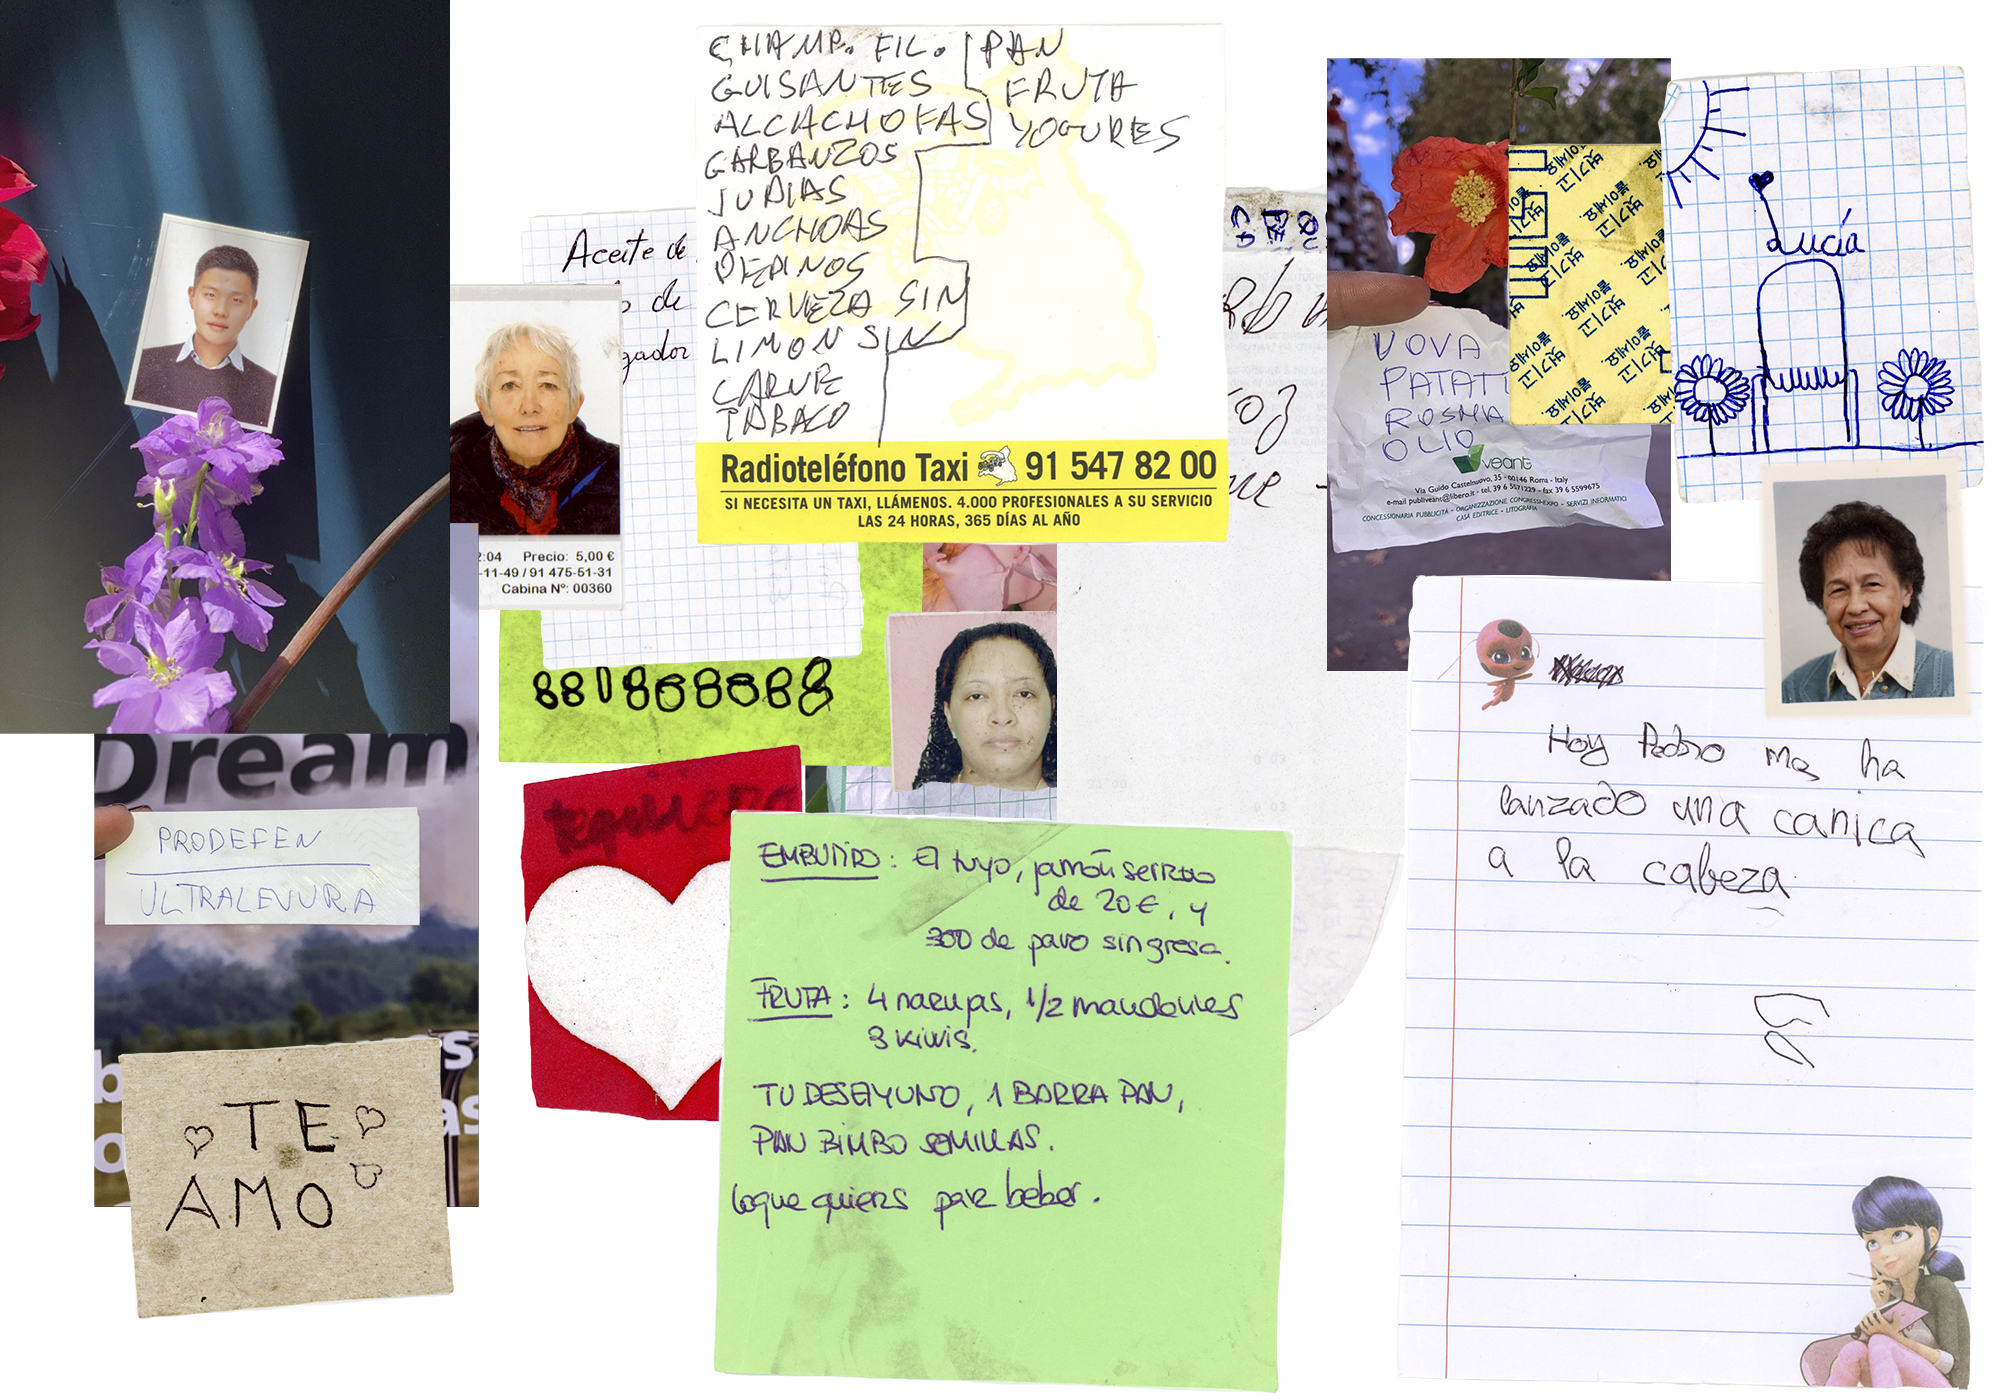 CHAMP. FIL.
GUISANTES
ALCACHOFAS
GARBANZOS
JUDIAS
ANCHOAS
PEPINOS
CERVEZA SIN
LIMON SIN
CARNE
TABACO
PAN
FRUTA
YOGURES
Radioteléfono Taxi 91 547 82 00
SI NECESITA UN TAXI, LLÁMENOS. 4.000 PROFESIONALES A SU SERVICIO
LAS 24 HORAS, 365 DÍAS AL AÑO
Aceite de
de
gador
2:04 Precio: 5,00 €
-11-49 / 91 475-51-31
Cabina Nº: 00360
UOVA
PATAT
ROSMA
OLIO
veant
Via Guido Castelnuovo, 35 - 00146 Roma - Italy
e-mail publiveant@libero.it - tel. 39 6 5571229 - fax 39 6 5599675
CONCESSIONARIA PUBBLICITÀ - ORGANIZZAZIONE CONGRESSI-EXPO - SERVIZI INFORMATICI
CASA EDITRICE - LITOGRAFIA
벗기고
붙이세요.
Lucía
Hoy Pedro me ha
lanzado una canica
a la cabeza
Dream
PRODEFEN
ULTRALEVURA
TE
AMO
te quiero
EMBUTIDO: El tuyo, jamón serrano
de 20€, y
300 de pavo sin grasa.
FRUTA: 4 naranjas, 1/2 mandarinas
3 kiwis.
TU DESAYUNO, 1 BARRA PAN,
PAN BIMBO SEMILLAS.
lo que quieras para beber.